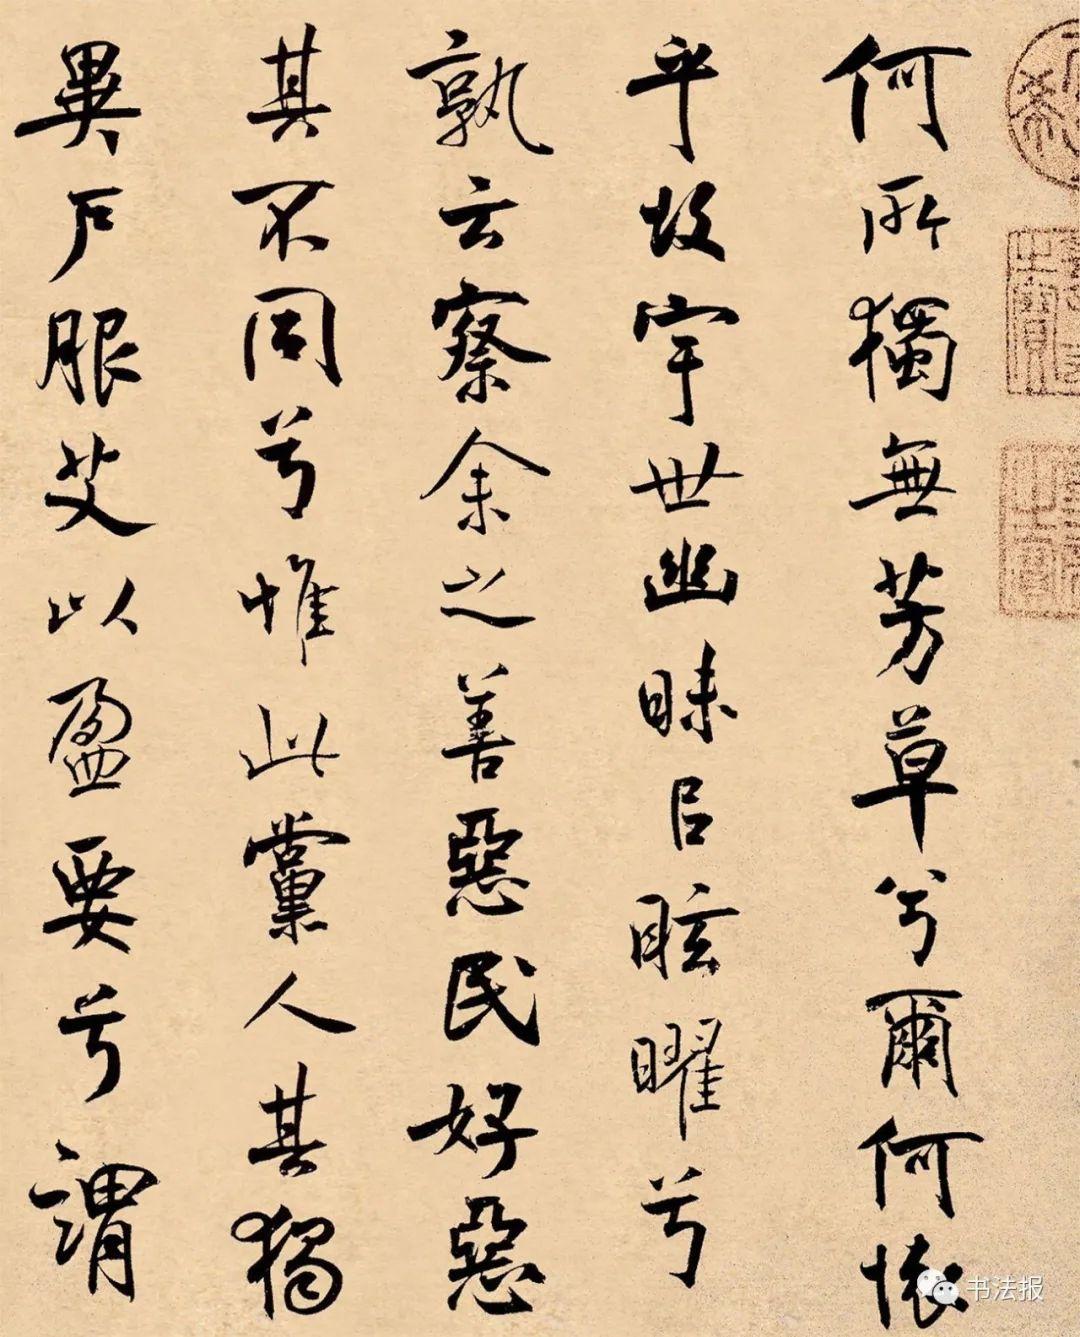 何所獨無芳草兮爾何懷
乎故宇世幽昧㠯眩曜兮
孰云察余之善惡民好惡
其不同兮惟此黨人其獨
異戶服艾以盈要兮謂
书法报